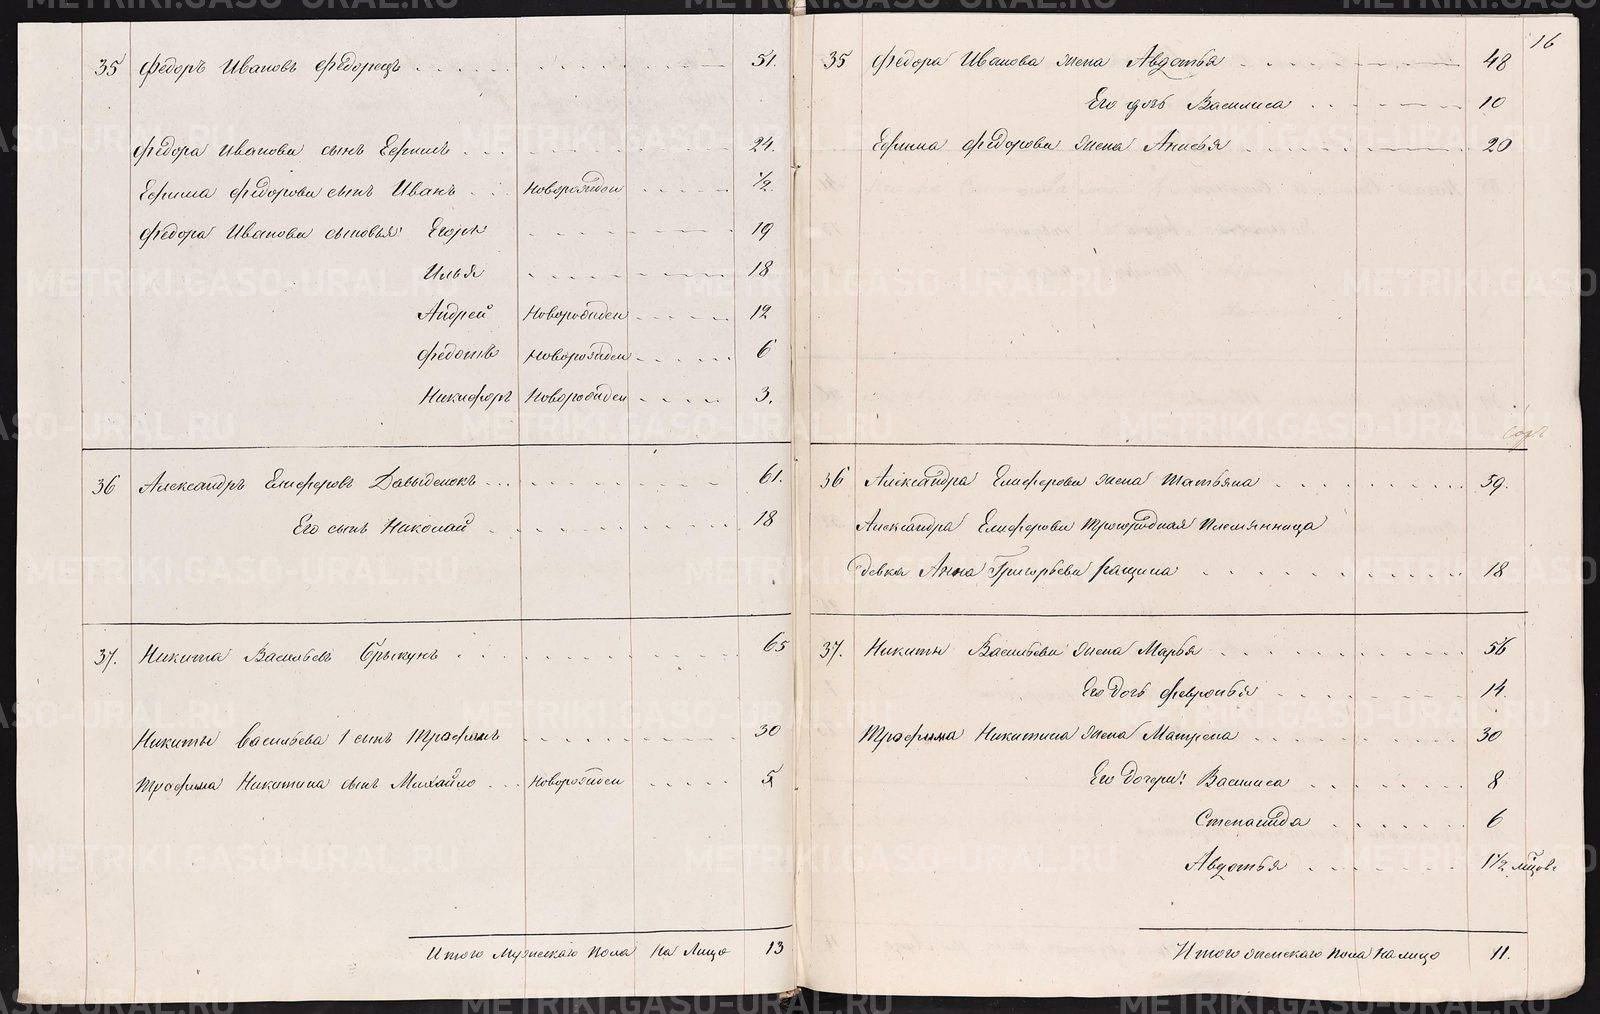 35 Федоръ Ивановъ Федорецъ 51.
Федора Иванова сынъ Ефимъ 24.
Ефима Федорова сынъ Иванъ Новорожден 1/2.
Федора Иванова сыновья: Егоръ 19
Илья 18
Андрей Новорожден 12
Федотъ Новорожден 6
Никифоръ Новорожден 3.
36 Александръ Елиферовъ Давыденокъ 61.
Его сынъ Николай 18
37. Никита Васильевъ Брыкунъ 65
Никиты Васильева 1 сынъ Трафимъ 30
Трафима Никитина сынъ Михайло Новорожден 5
Итого мужескаго пола на лицо 13
16
35 Федора Иванова жена Авдотья 48
Его дочь Василиса 10
Ефима Федорова жена Анисья 20
36 Александра Елиферова жена Татьяна 59.
Александра Елиферова троюродная племянница
девка Анна Григорьева 18
37. Никиты Васильева жена Марья 56
Его дочь Февронья 14
Трафима Никитина жена Матрена 30
Его дочери: Василиса 8
Степанида 6
Авдотья 1 1/2
Итого женскаго пола на лицо 11.
METRIKI.GASO-URAL.RU